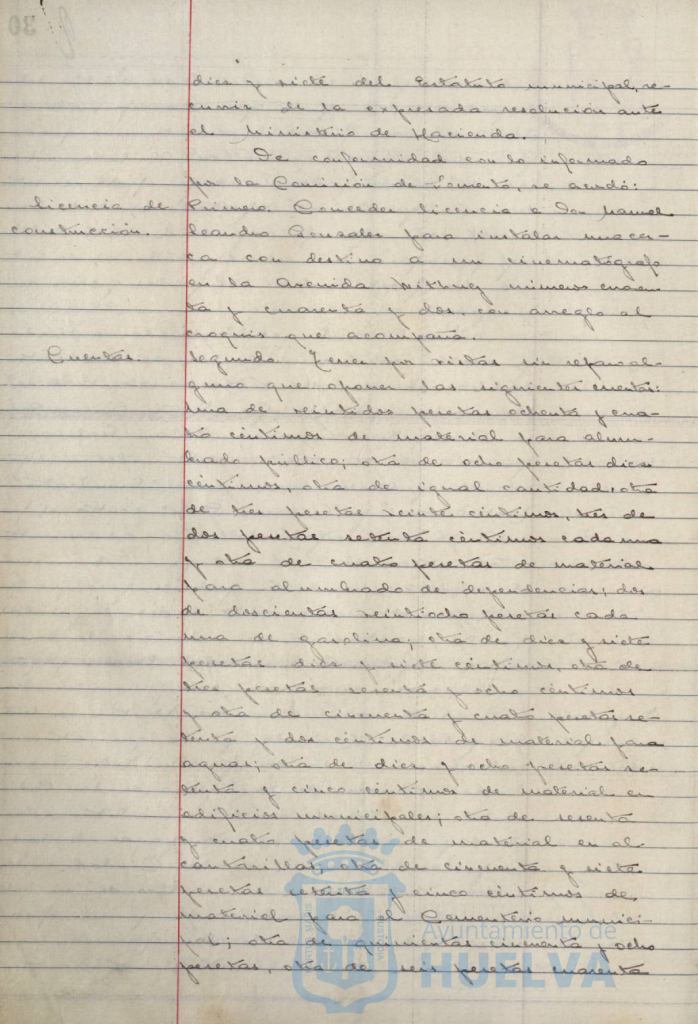 diez y siete del Estatuto municipal, re-
currir de la expresada resolución ante
el Ministerio de Hacienda.
De conformidad con lo informado
por la Comisión de Fomento, se acordó:
licencia de
construcción.
Primero. Conceder licencia a Don Manuel
Leandro Gonzalez para instalar una cer-
ca con destino a un cinematógrafo
en la Avenida números cuaren
ta y cuarenta y dos, con arreglo al
croquis que acompaña.
Cuentas.
Segundo. Tener por vistas sin reparo al-
guno que oponer las siguientes cuentas:
una de veintidos pesetas ochenta y cua-
tro céntimos de material para alum-
brado público; otra de ocho pesetas diez
céntimos, otra de igual cantidad, otra
de tres pesetas veinte céntimos, tres de
dos pesetas setenta céntimos cada una
y otra de cuatro pesetas de material
para alumbrado de dependencias; dos
de doscientas veintiocho pesetas cada
una de gasolina; otra de diez y siete
pesetas diez y siete céntimos, otra de
pesetas sesenta y ocho céntimos
y otra de cincuenta y cuatro pesetas se-
tenta y dos céntimos de material para
aguas; otra de diez y ocho pesetas
y cinco céntimos de material en
edificios municipales; otra de sesenta
y cuatro pesetas de material en al
cantarillas, otra de cincuenta y siete
pesetas setenta y cinco céntimos de
material para el Cementerio munici-
pal; otra de quinientas cincuenta y ocho
pesetas, otra de seis pesetas cuarenta
Ayuntamiento de
HUELVA